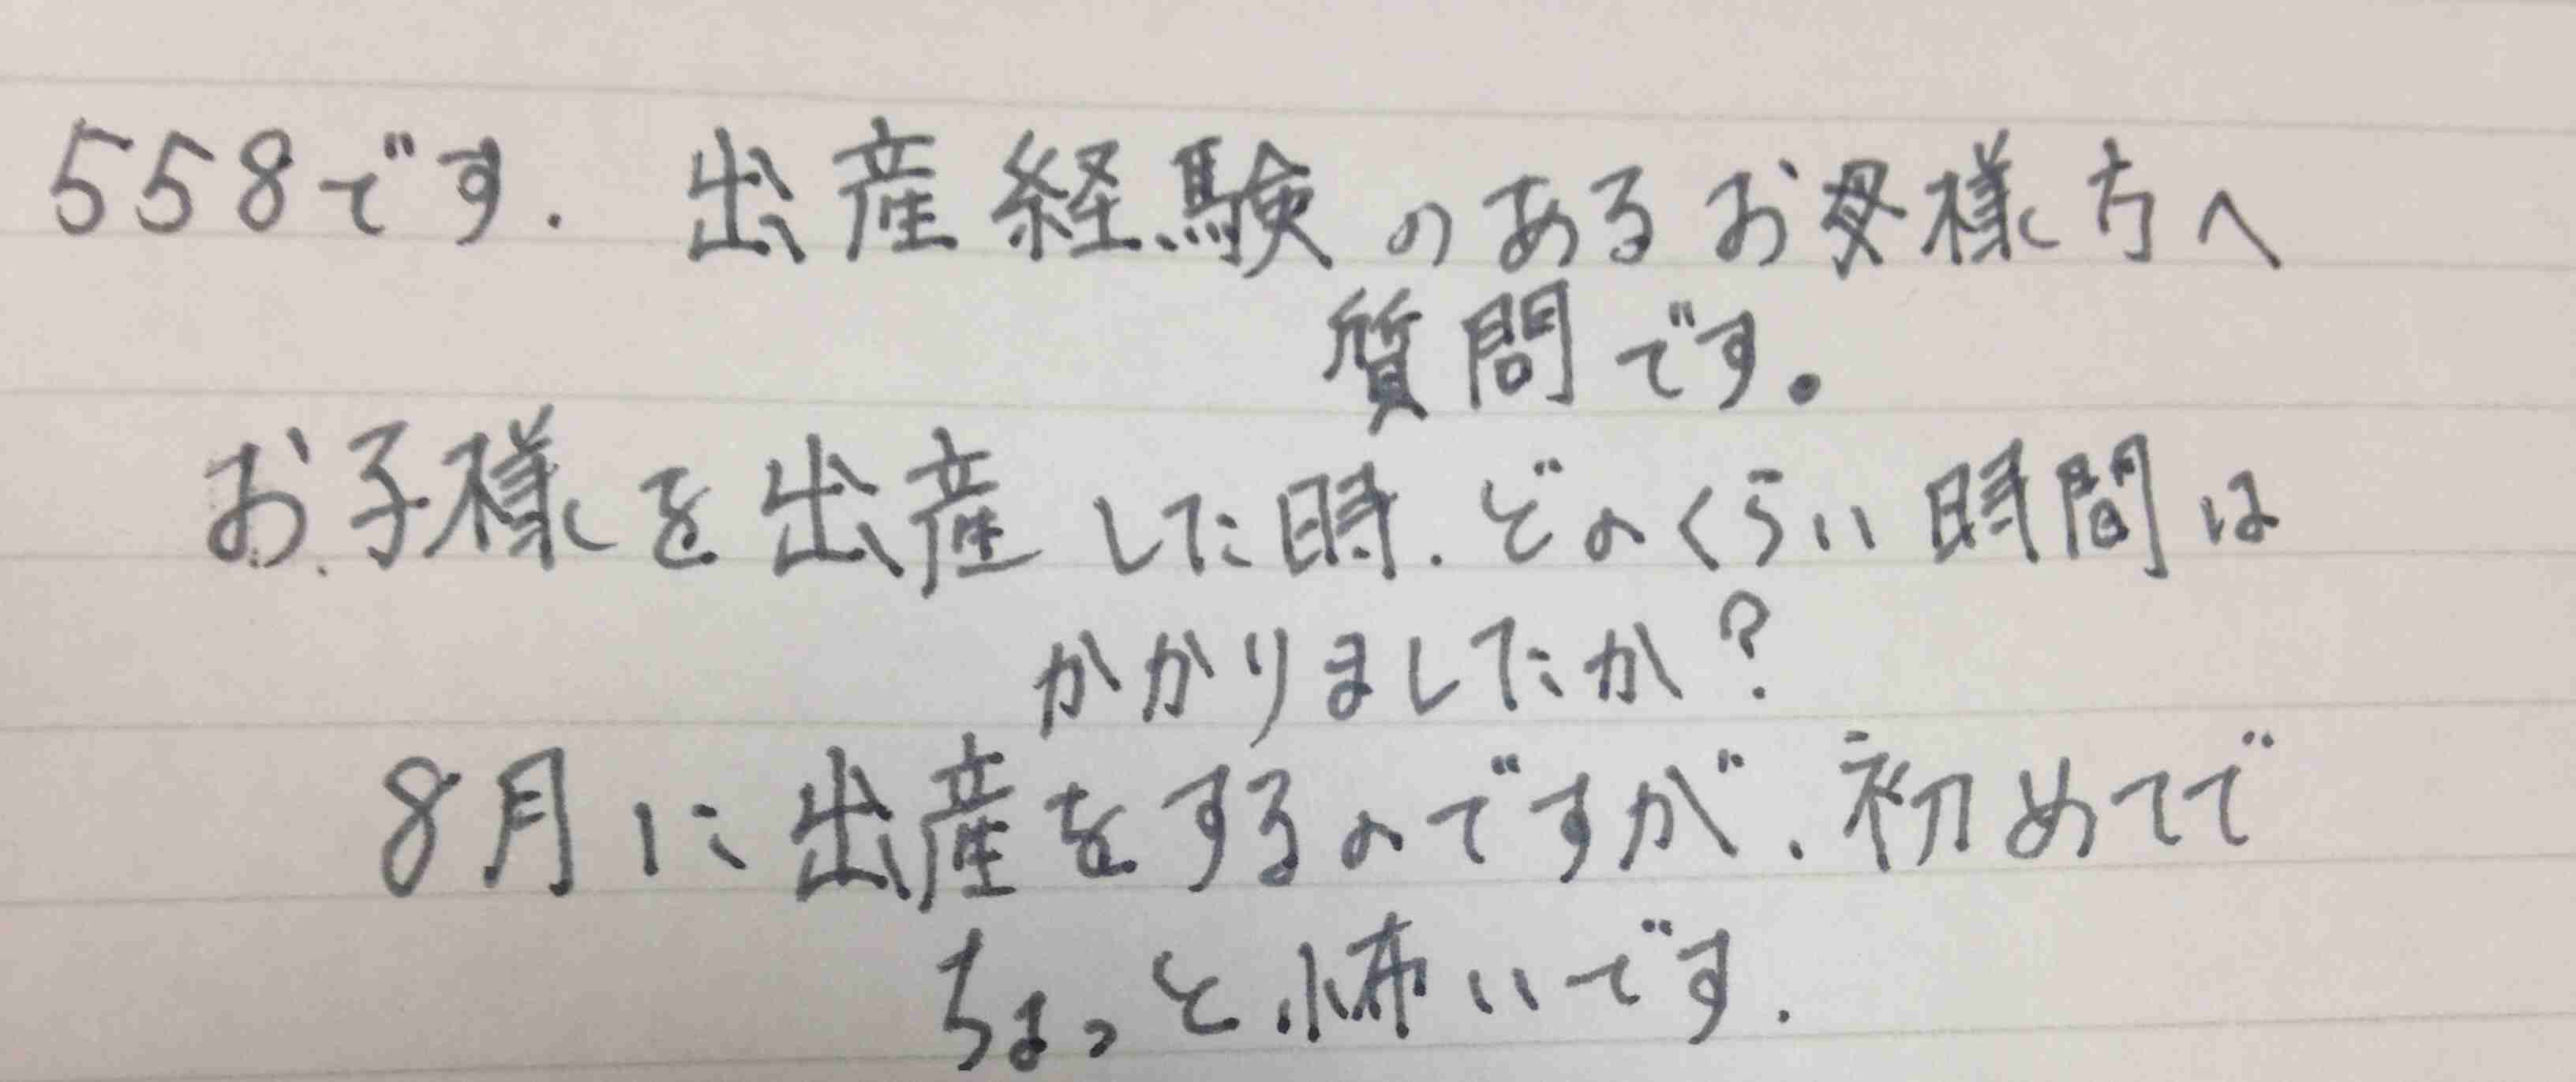 558です. 出産経験のあるお母様方へ
質問です。
お子様を出産した時.どのくらい時間は
かかりましたか?
8月に出産をするのですが.初めてで
ちょっと怖いです.